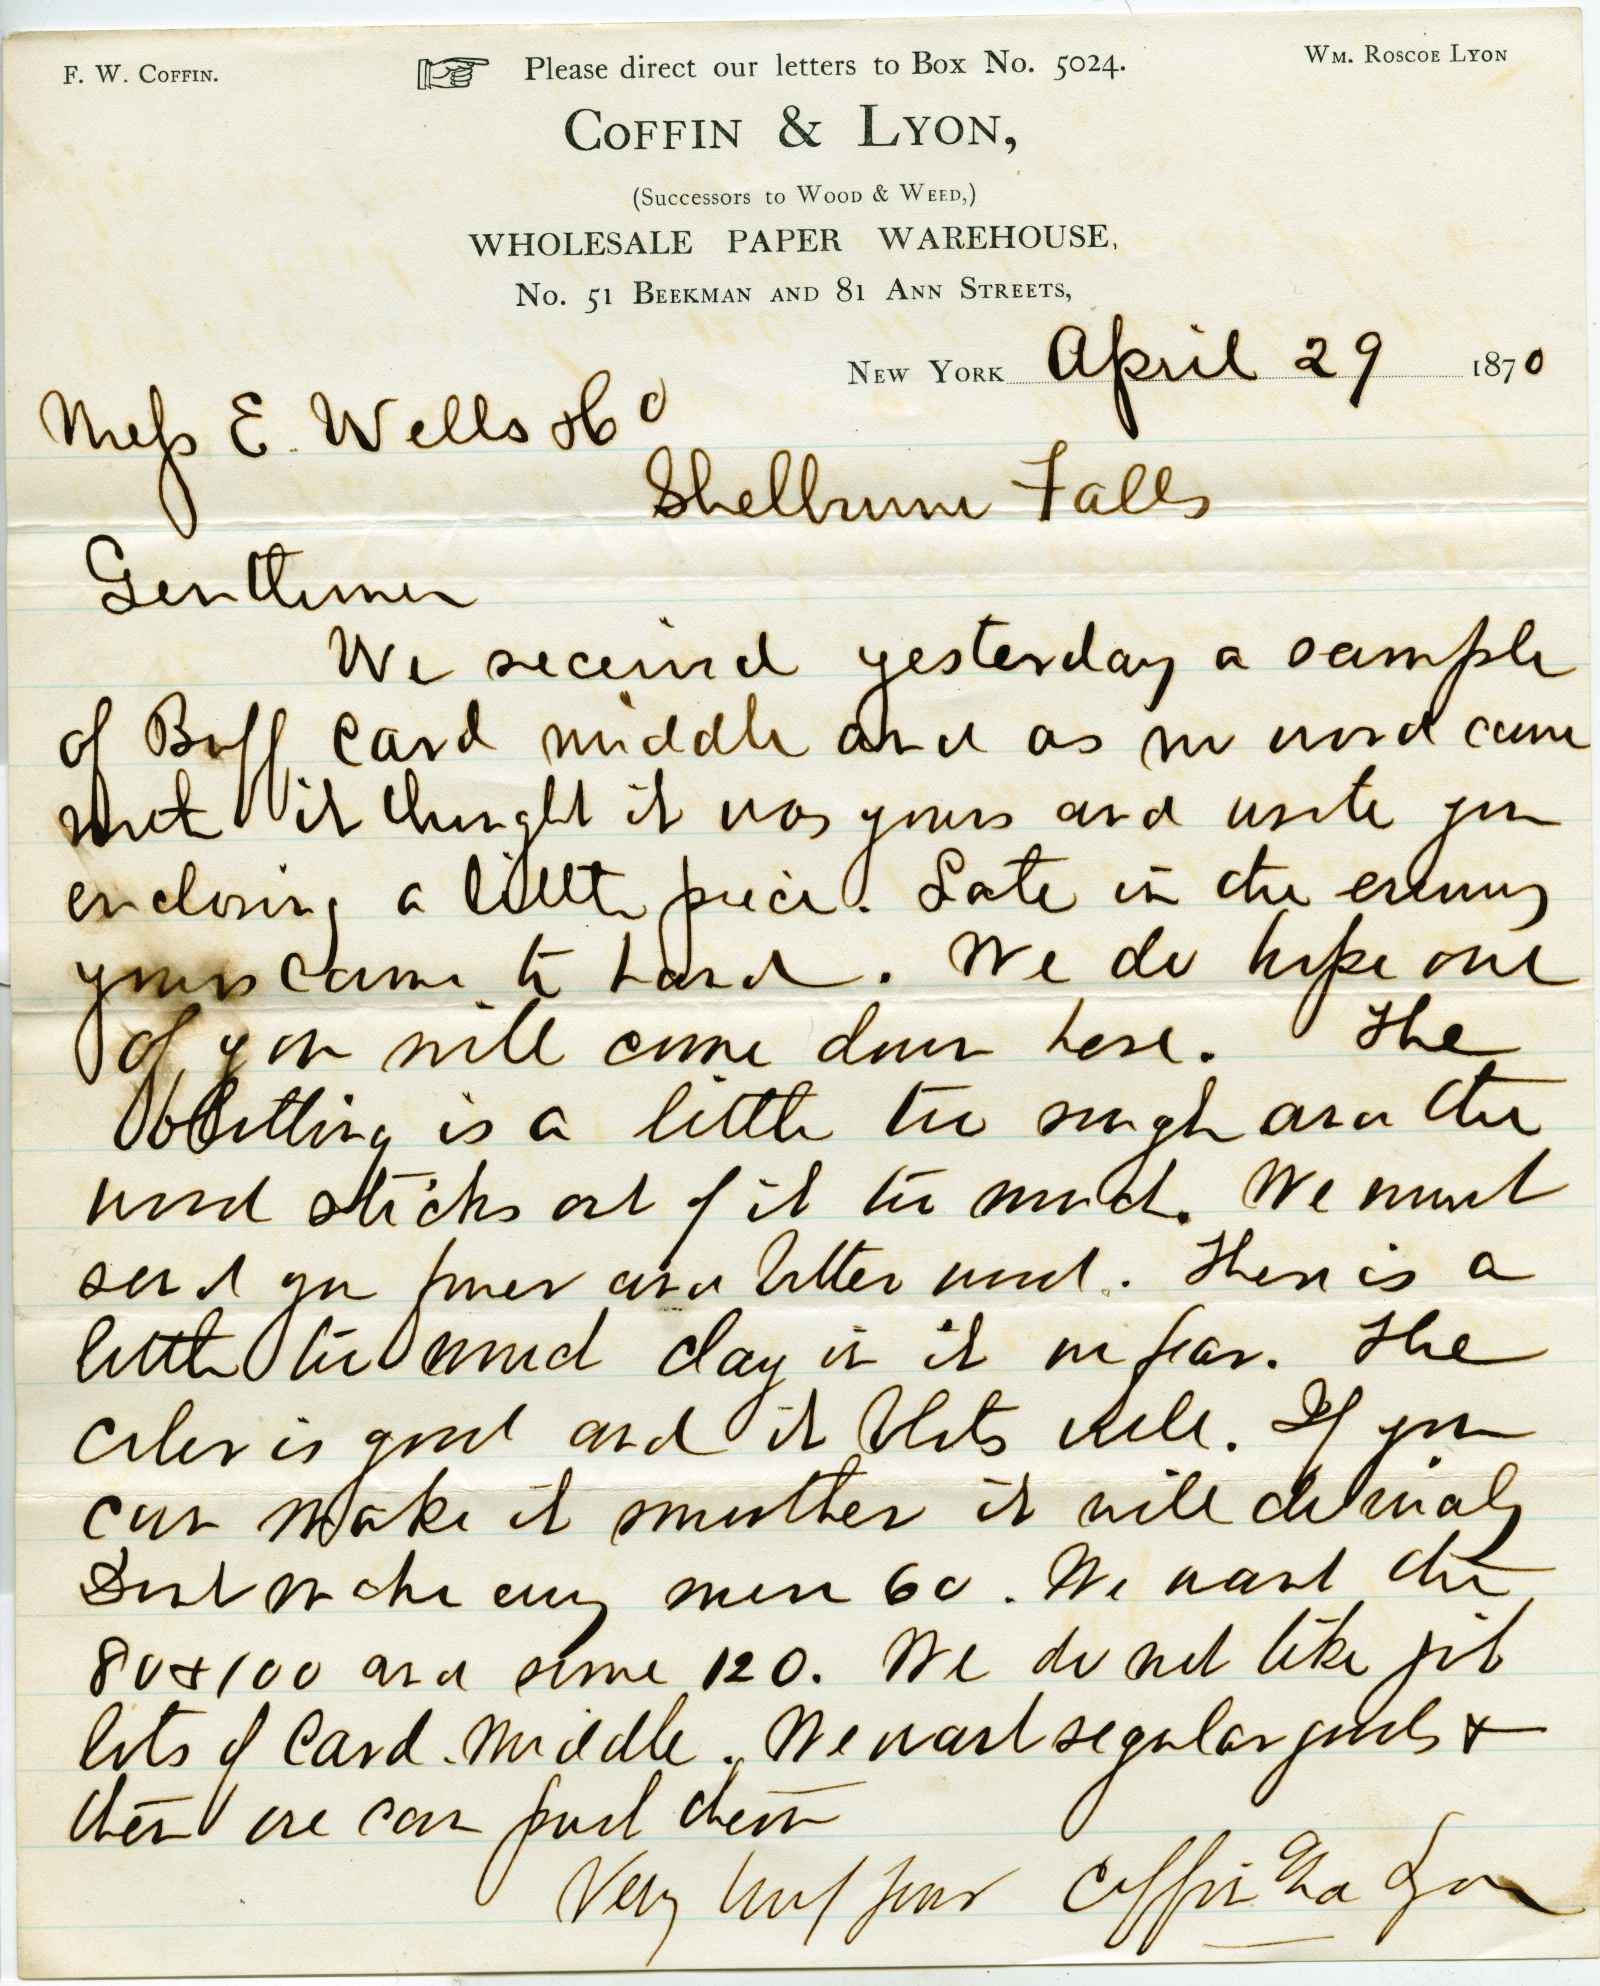 F. W. Coffin.
Please direct our letters to Box No. 5024.
Wm. Roscoe Lyon
Coffin & Lyon,
(Successors to Wood & Weed,)
WHOLESALE PAPER WAREHOUSE,
No. 51 Beekman and 81 Ann Streets,
New York April 29 1870
Mess E. Wells & Co
Shelburne Falls
Gentlemen
We received yesterday a sample
of Buff Card middle and as no word came
with it thought it was yours and wrote you
enclosing a little piece. Late in the evening
yours came to hand. We do hope one
of you will come down here. The
Blotting is a little too rough and the
wood sticks out of it too much. We must
send you finer and better wood. There is a
little too much clay in it we fear. The
color is good and it blots well. If you
can make it smoother it will do nicely
Dont make any more 60. We want the
80 & 100 and some 120. We do not like job
lots of Card Middle. We want regular goods &
then we can push them
Very truly yours Coffin & Lyon